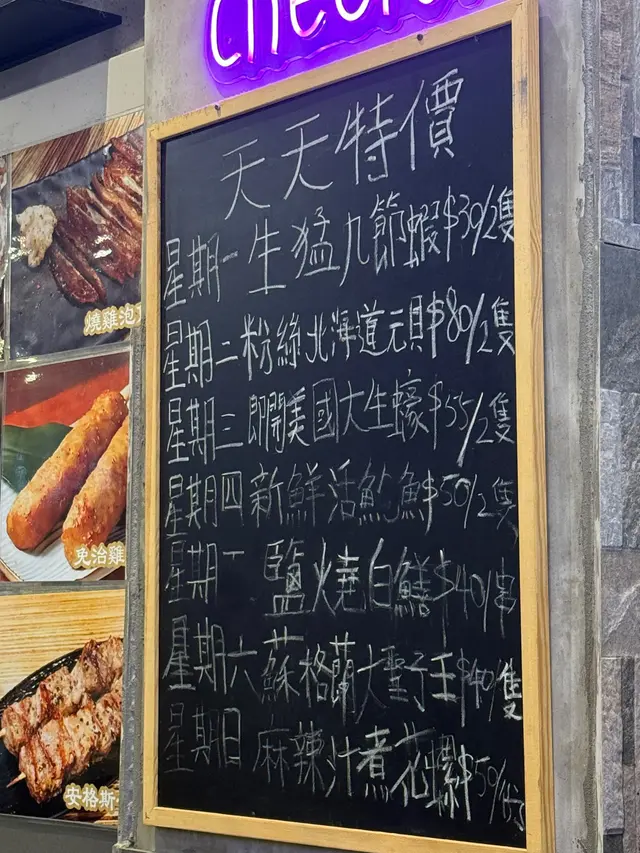 天天特價
星期一生猛九節蝦$30/2隻
星期二粉絲北海道元貝$80/2隻
星期三即開美國大生蠔$55/2隻
星期四新鮮活魷魚$50/2隻
星期 鹽燒白鱔$40/串
星期六蘇格蘭大聖子王$40/隻
星期日麻辣汁煮花螺$50/份
燒雞泡
免治雞
安格斯